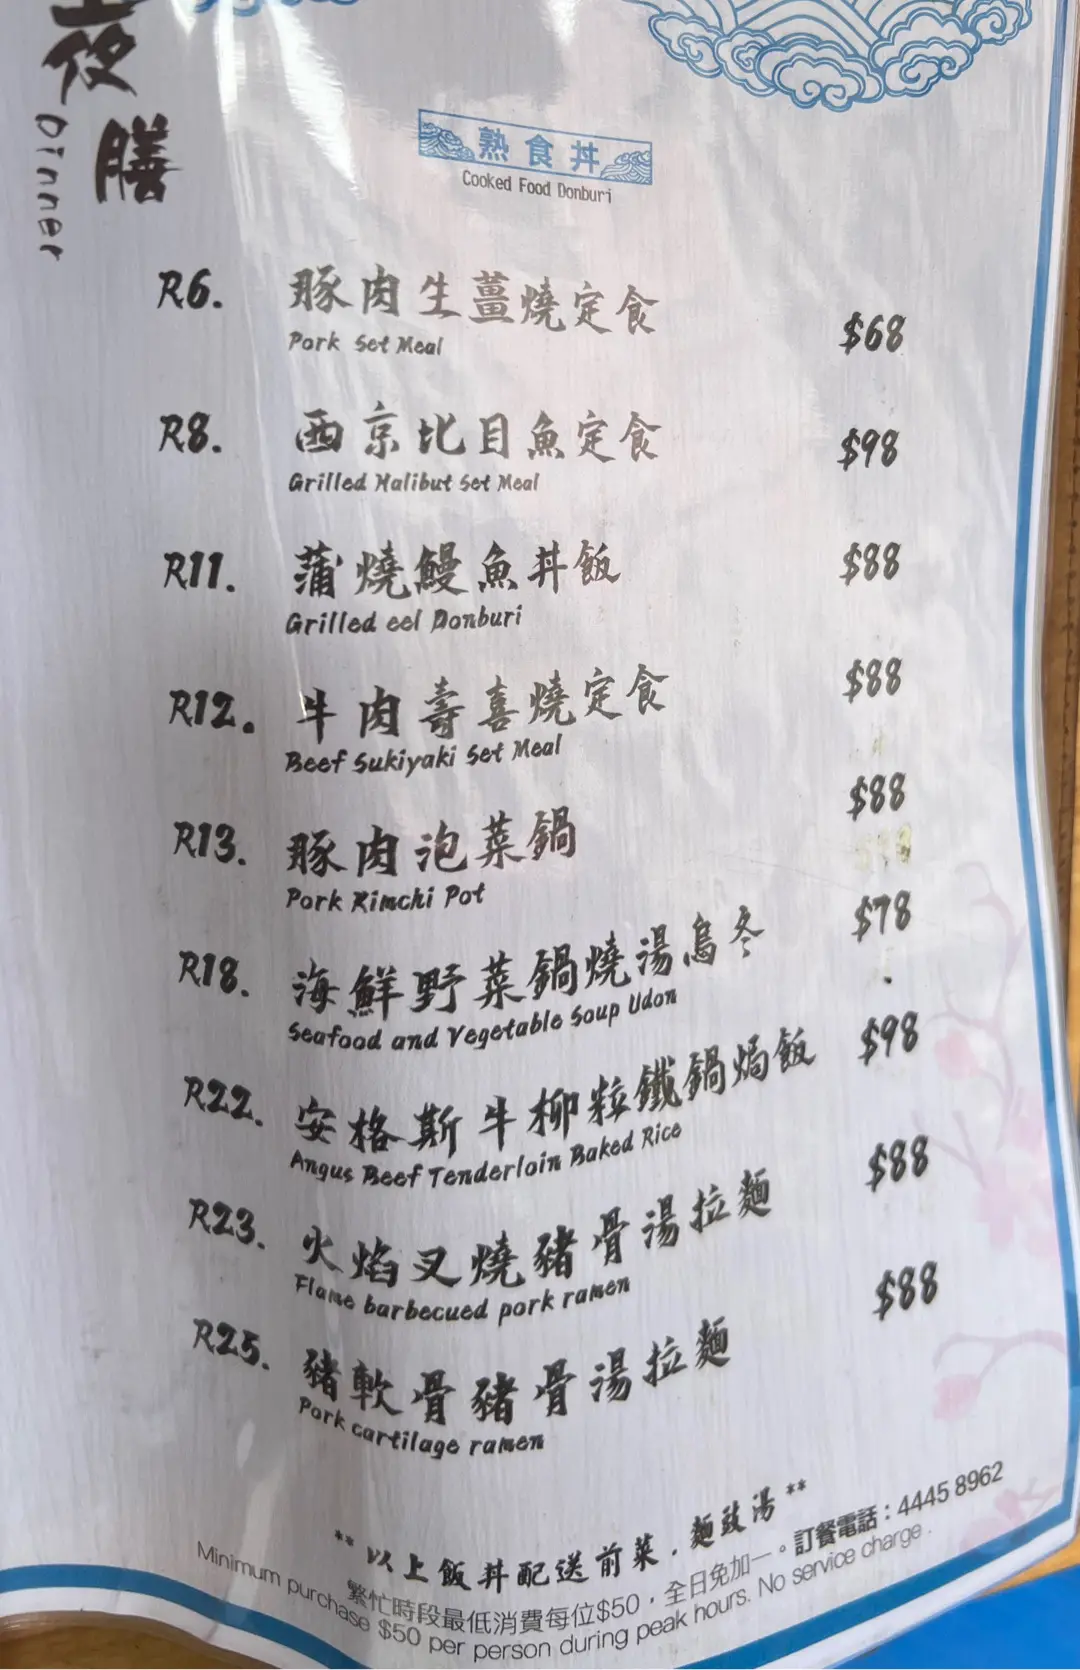 夜膳
Dinner
熟食丼
Cooked Food Donburi
R6. 豚肉生薑燒定食 $68
Pork Set Meal
R8. 西京比目魚定食 $98
Grilled Halibut Set Meal
R11. 蒲燒鰻魚丼飯 $88
Grilled eel Donburi
R12. 牛肉壽喜燒定食 $88
Beef Sukiyaki Set Meal
R13. 豚肉泡菜鍋 $88
Pork Kimchi Pot
R18. 海鮮野菜鍋燒湯烏冬 $78
Seafood and Vegetable Soup Udon
R22. 安格斯牛柳粒鐵鍋焗飯 $98
Angus Beef Tenderloin Baked Rice
R23. 火焰叉燒豬骨湯拉麵 $88
Flame barbecued pork ramen
R25. 豬軟骨豬骨湯拉麵 $88
Pork cartilage ramen
**以上飯丼配送前菜．麵豉湯**
繁忙時段最低消費每位$50，全日免加一。訂餐電話：4445 8962
Minimum purchase $50 per person during peak hours. No service charge.